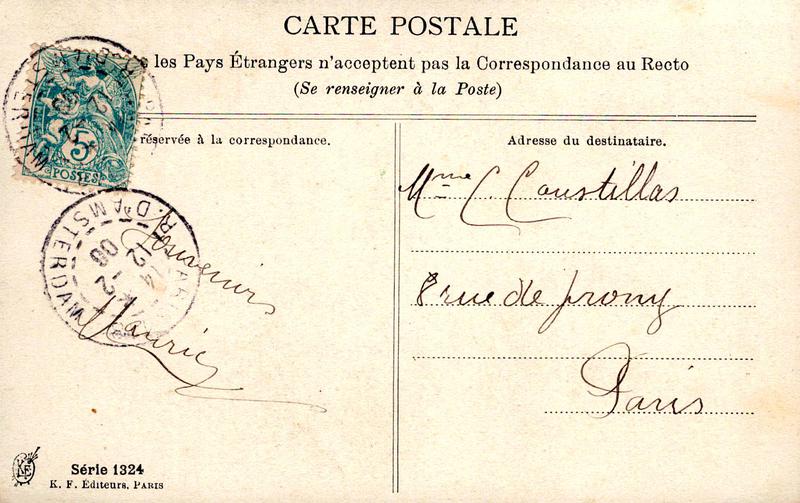 CARTE POSTALE
les Pays Étrangers n'acceptent pas la Correspondance au Recto
(Se renseigner à la Poste)
5
POSTES
réservée à la correspondance.
Adresse du destinataire.
Mme C Coustillas
8 rue de prony
Paris
PARIS
R. D'AMSTERDAM
Souvenir
Maurice
KF
Série 1324
K. F. Éditeurs, PARIS